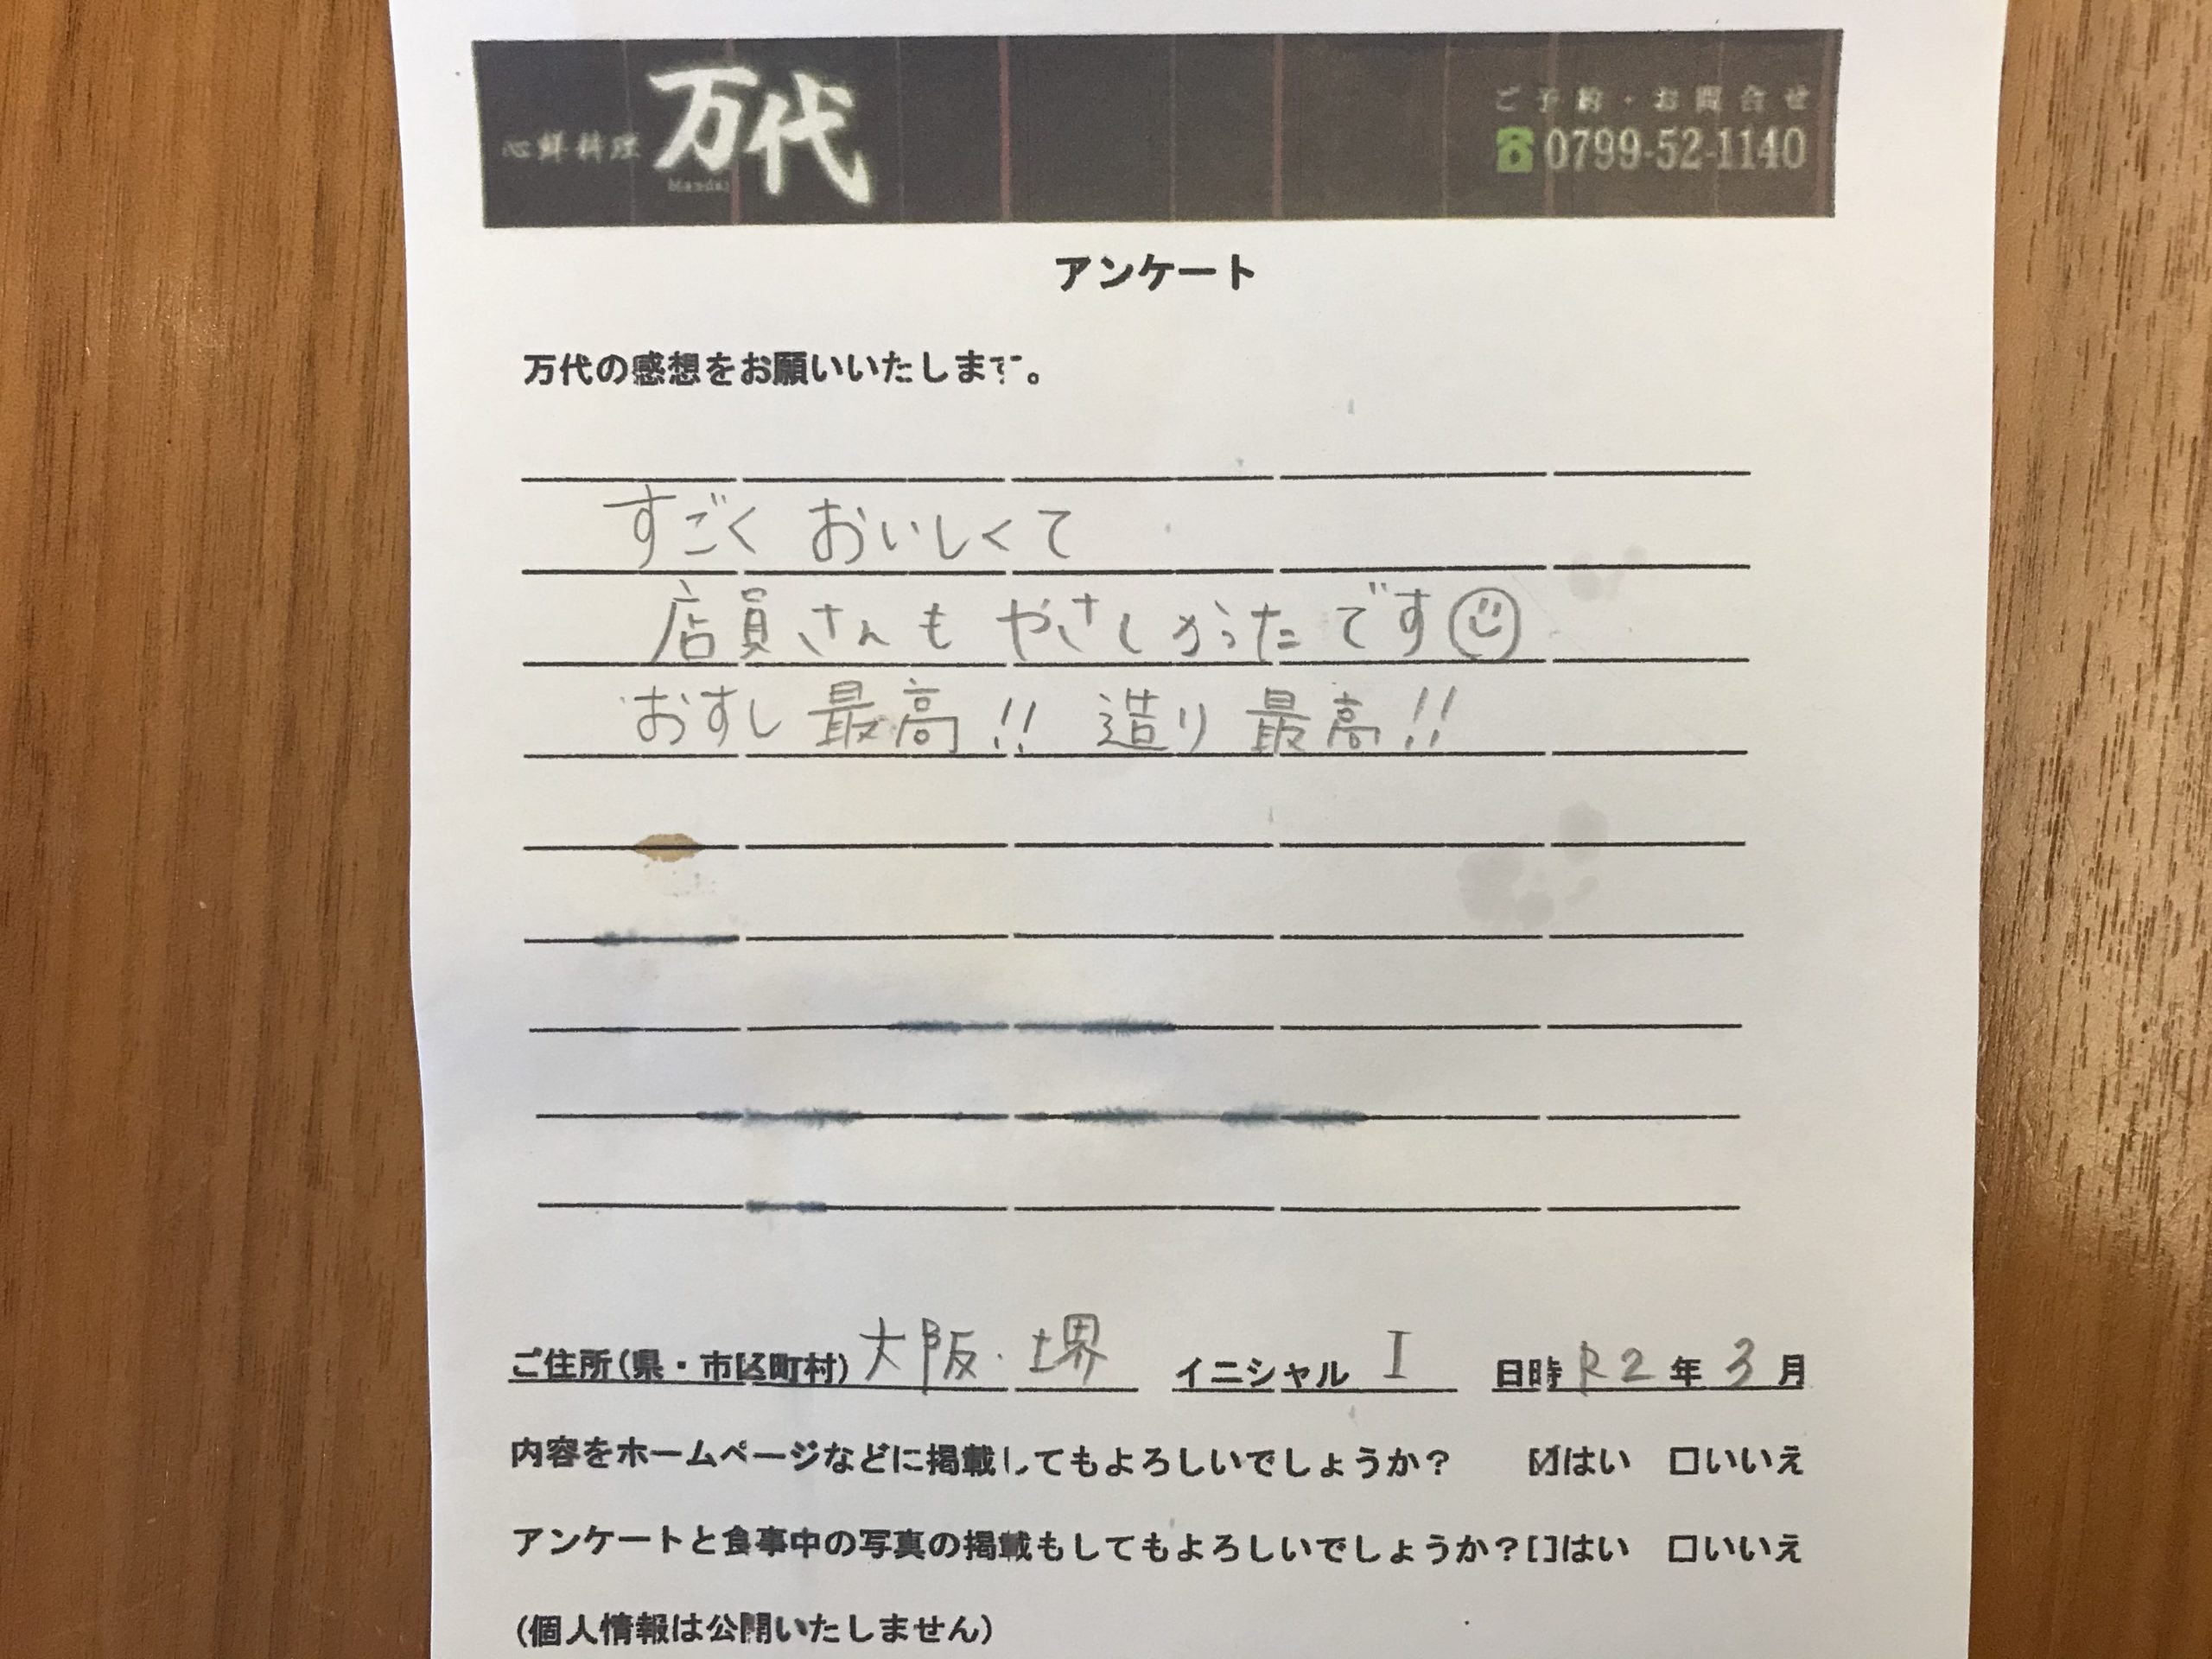 心鮮料理 万代
Mandai
ご予約・お問合せ
0799-52-1140
アンケート
万代の感想をお願いいたします。
すごく おいしくて
店員さんも やさしかったです
おすし 最高!! 造り 最高!!
ご住所(県・市区町村) 大阪・堺 イニシャル I 日時 R2 年 3 月
内容をホームページなどに掲載してもよろしいでしょうか? ☑はい □いいえ
アンケートと食事中の写真の掲載もしてもよろしいでしょうか?□はい □いいえ
(個人情報は公開いたしません)